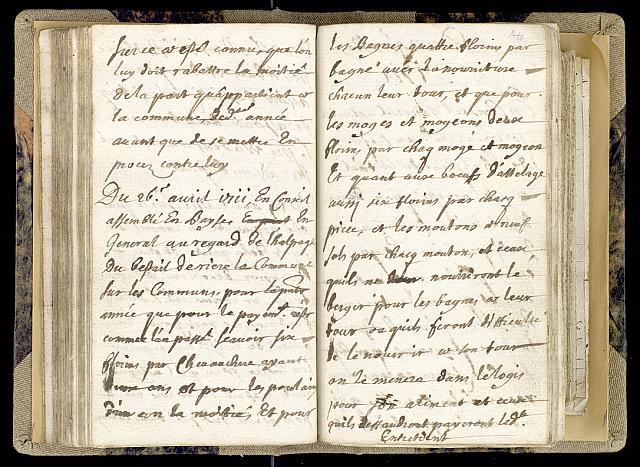 sur ce a esté connu, que l'on
luy doit rabattre la moitié
de la part qu'appartient a
la commune, année
avant que de se mettre En
proces contre luy
Du 26.e avril 1711, En Conseil
assemblé En En
General au regard de
Du bestail derriere la Commune
sur les Communs, pour la pnte
année que pour le payemt.
comme l'an passé scavoir six
florins par Chevauchure ayant
ans et pour les poulain
d'un an la moitié, Et pour
les Bagues quatre florins par
bague avec la nourriture
chacun leur tour, et que pour
les moges et mogeons deux
florins par chaq moge et mogeon
Et quant aux boeufs d'attelage
aussi six florins par chacq
piece, et les moutons neuf
sols par chacq mouton, et ceux
quils ne nourriront le
berger pour les bagues a leur
tour ou quils feront difficulté
de le nourrir a son tour
on le menera dans le logis
pour aliment et ceux
quils deffaudront payeront led.t
Entretient